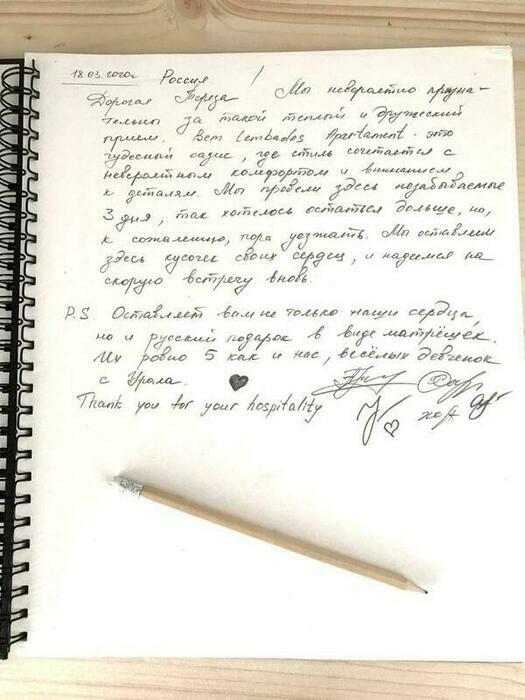 18.03.2020г. Россия
Дорогая Тереза! Мы невероятно призна-
тельны за такой теплый и дружеский
прием. Bem Lembados Apartament - это
чудесный оазис, где стиль сочетается с
невероятным комфортом и вниманием
к деталям. Мы провели здесь незабываемые
3 дня, так хотелось остаться дольше, но,
к сожалению, пора уезжать. Мы оставляем
здесь кусочек своих сердец, и надеемся на
скорую встречу вновь.
P.S. Оставляет вам не только наши сердца,
но и русский подарок в виде матрёшек.
Их ровно 5 как и нас, весёлых девченок
с Урала.
Thank you for your hospitality